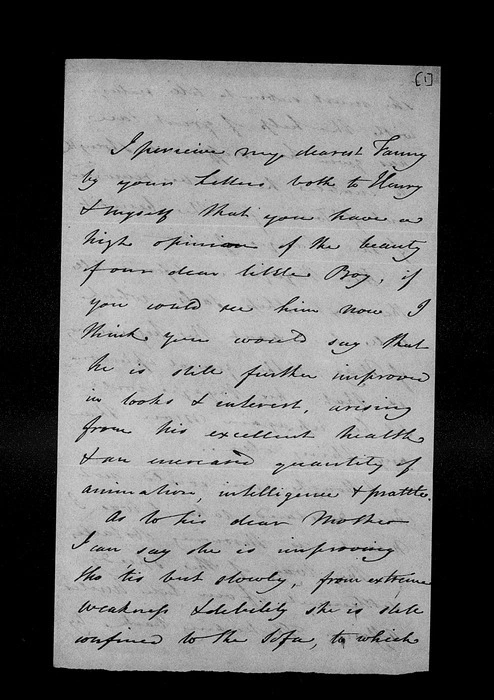 (1)
I perceive my dearest Fanny
by your Letters both to Henry
& myself that you have a
high opinion of the beauty
of our dear little Boy, if
you could see him now I
think you would say that
he is still further improved
in looks & interest, arising
from his excellent health
& an increased quantity of
animation, intelligence & prattle.
As to his dear Mother
I can say she is improving
tho 'tis but slowly, from extreme
weakness & debility she is still
confined to the Sofa, to which